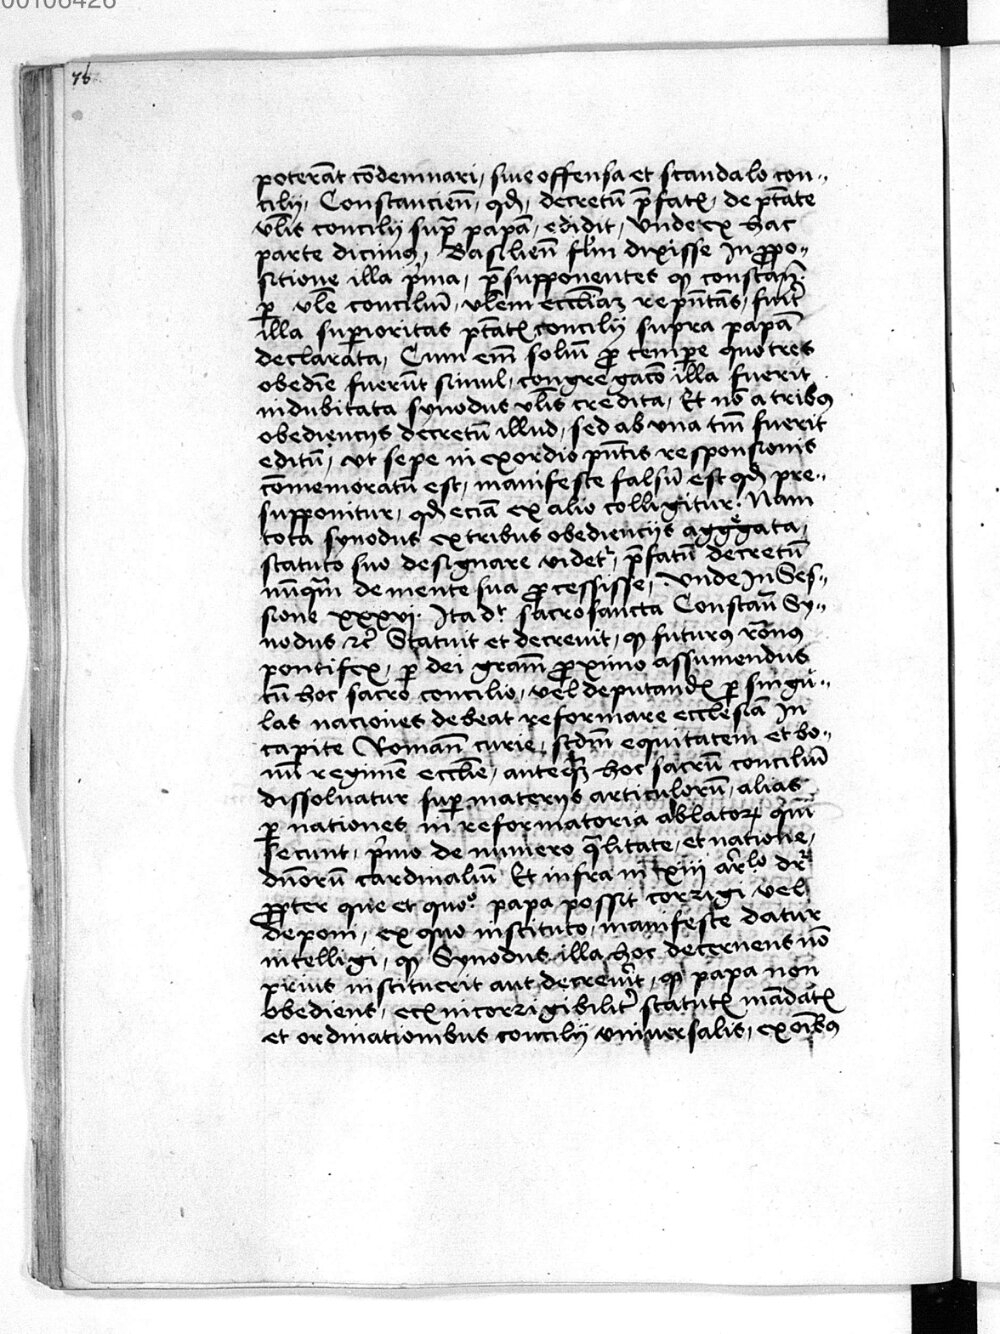 00106426
76
poterāt cōdemnari, sine offensa et scandalo con„
cilij, Constancien̄, qđ, decretū p̄fatꝫ, de ptāte
vlīs concilij supᵃ papā, edidit, Unde ex hac
parte dicimꝯ, Basilien̄ dixisse in ꝓpo„
sitione illa p̄ma, p̄supponentes qꝫ constan̄.
ꝑ vle conciliū, vlem eccliaꝫ repn̄tās, fuit
illa supioritas ptātꝫ concilij supra papā
declarata, Cum em̄ solū ꝓ tempore quo tres
obedie fuerūt simul, congregaco illa fuerit
indubitata synodus vlis credita, Et nō a tribꝯ
obediencijs decretū illud, sed ab vna tm̄ fuerit
editū, ut sepe in exordio pn̄tis responsionis
cōmemoratū est, manifeste falsū est qđ pre„
supponitur, qđ eciā ex alio colligitur. Nam
tota synodus ex tribus obediencijs aggregata,
statuto suo designare videtʳ, p̄fatū decretū
nūqᵃm de mente sua ꝓcessisse, Unde in Ses„
sione xxxxvi. Ita dʳ sacrosancta Constan̄ Sy„
nodus ꝛc̄ Statuit et decrevit, qꝫ futurꝯ rōnꝯ
pontifex, ꝑ dei gram̄ ꝓximo assumendus
cū hoc sacro concilio, vel deputandꝫ ꝑ singu„
las naciones debeat reformare ecclesiā in
capite Roman̄ curie, scdm̄ equitatem et bo„
nū regimē ecclie, anteqᵃꝫ hoc sacrū conciliū
dissolvatur sup materijs articulorū, alias
ꝑ nationes in reformatoria ablatoꝝ
secunt, p̄mo de numero qᵃlitate, et natione,
dn̄orū cardinaliū Et infra in xiii arlo dʳ
ꝓpter que et quoᵒ papa possit corrigi vel
deponi, ex quo instituto, manifeste datur
intelligi, qꝫ Synodus illa, hoc decernens nō
prius instituerit aut decreverit, qꝫ papa non
obediens, incorrigibilitʳ statutꝫ mādatꝫ
et ordinationibus concilij universalis, ex oībꝯ